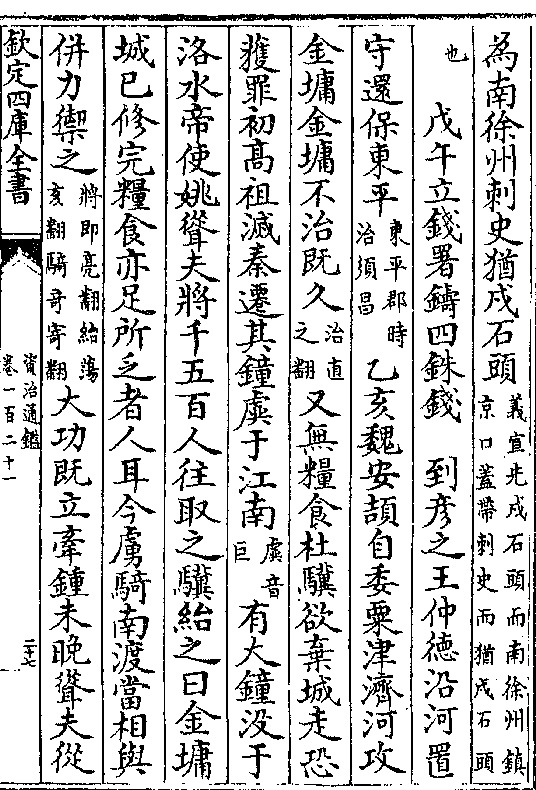 為南徐州刺史猶戍石頭義宣先戍石頭而南徐州鎮京口蓋帶刺史而猶戍石頭
也　戊午立錢署鑄四銖錢　到彦之王仲徳沿河置
守還保東平東平郡時治須昌乙亥魏安頡自委粟津濟河攻
金墉金墉不治既久治直之翻又無糧食杜驥欲棄城走恐
獲罪初髙祖滅秦遷其鐘虡于江南虡音巨有大鐘没于
洛水帝使姚聳夫將千五百人往取之驥紿之曰金墉
城已修完糧食亦足所乏者人耳今虜騎南渡當相與
併力禦之將即亮翻紿蕩亥翻騎奇寄翻大功既立牽鍾未晚聳夫從
欽定四庫全書
資治通鑑
卷一百二十一
二十七